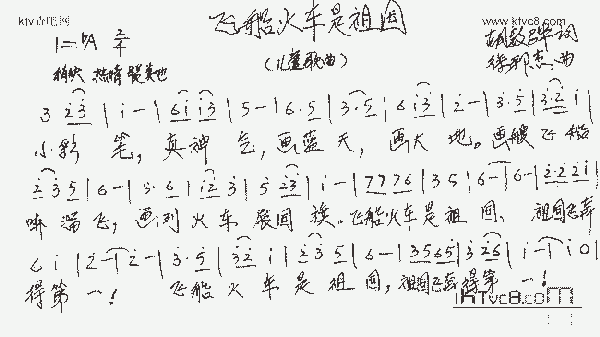 飞船火车是祖国
ktv www.ktvc8.com
(儿童歌曲)
1=♭A 2/4 词
稍快 热情 曲
3 2̇3̇ | i - | 6i i3̇ | 5 - | 6·5 | 3·5 | 6i3̇ | 2̇ - | 3·5 | 3̇·2̇ i |
小彩 笔, 真神 气, 画蓝 天, 画大 地。画艘飞船
2̇ 3̇5 | 6 - | 3·6 | i2̇ 3̇ | 5 2̇3̇ | i - | 7776 | 35 | 6 - | 6 - | 2̇·2̇2̇i |
飞, 画列 火车 飞船火车是祖国、祖国飞奔
6 i | 2̇ - | 2̇ - | 3̇·5 | 3̇2̇ i | 2̇3̇ 5 | 6 - | 3565 | 3̇ 2̇6 | i - | i 0 |
得第 一! 飞船 火 车 是 祖 国, 祖国飞奔得第 一!
ktvc8.com